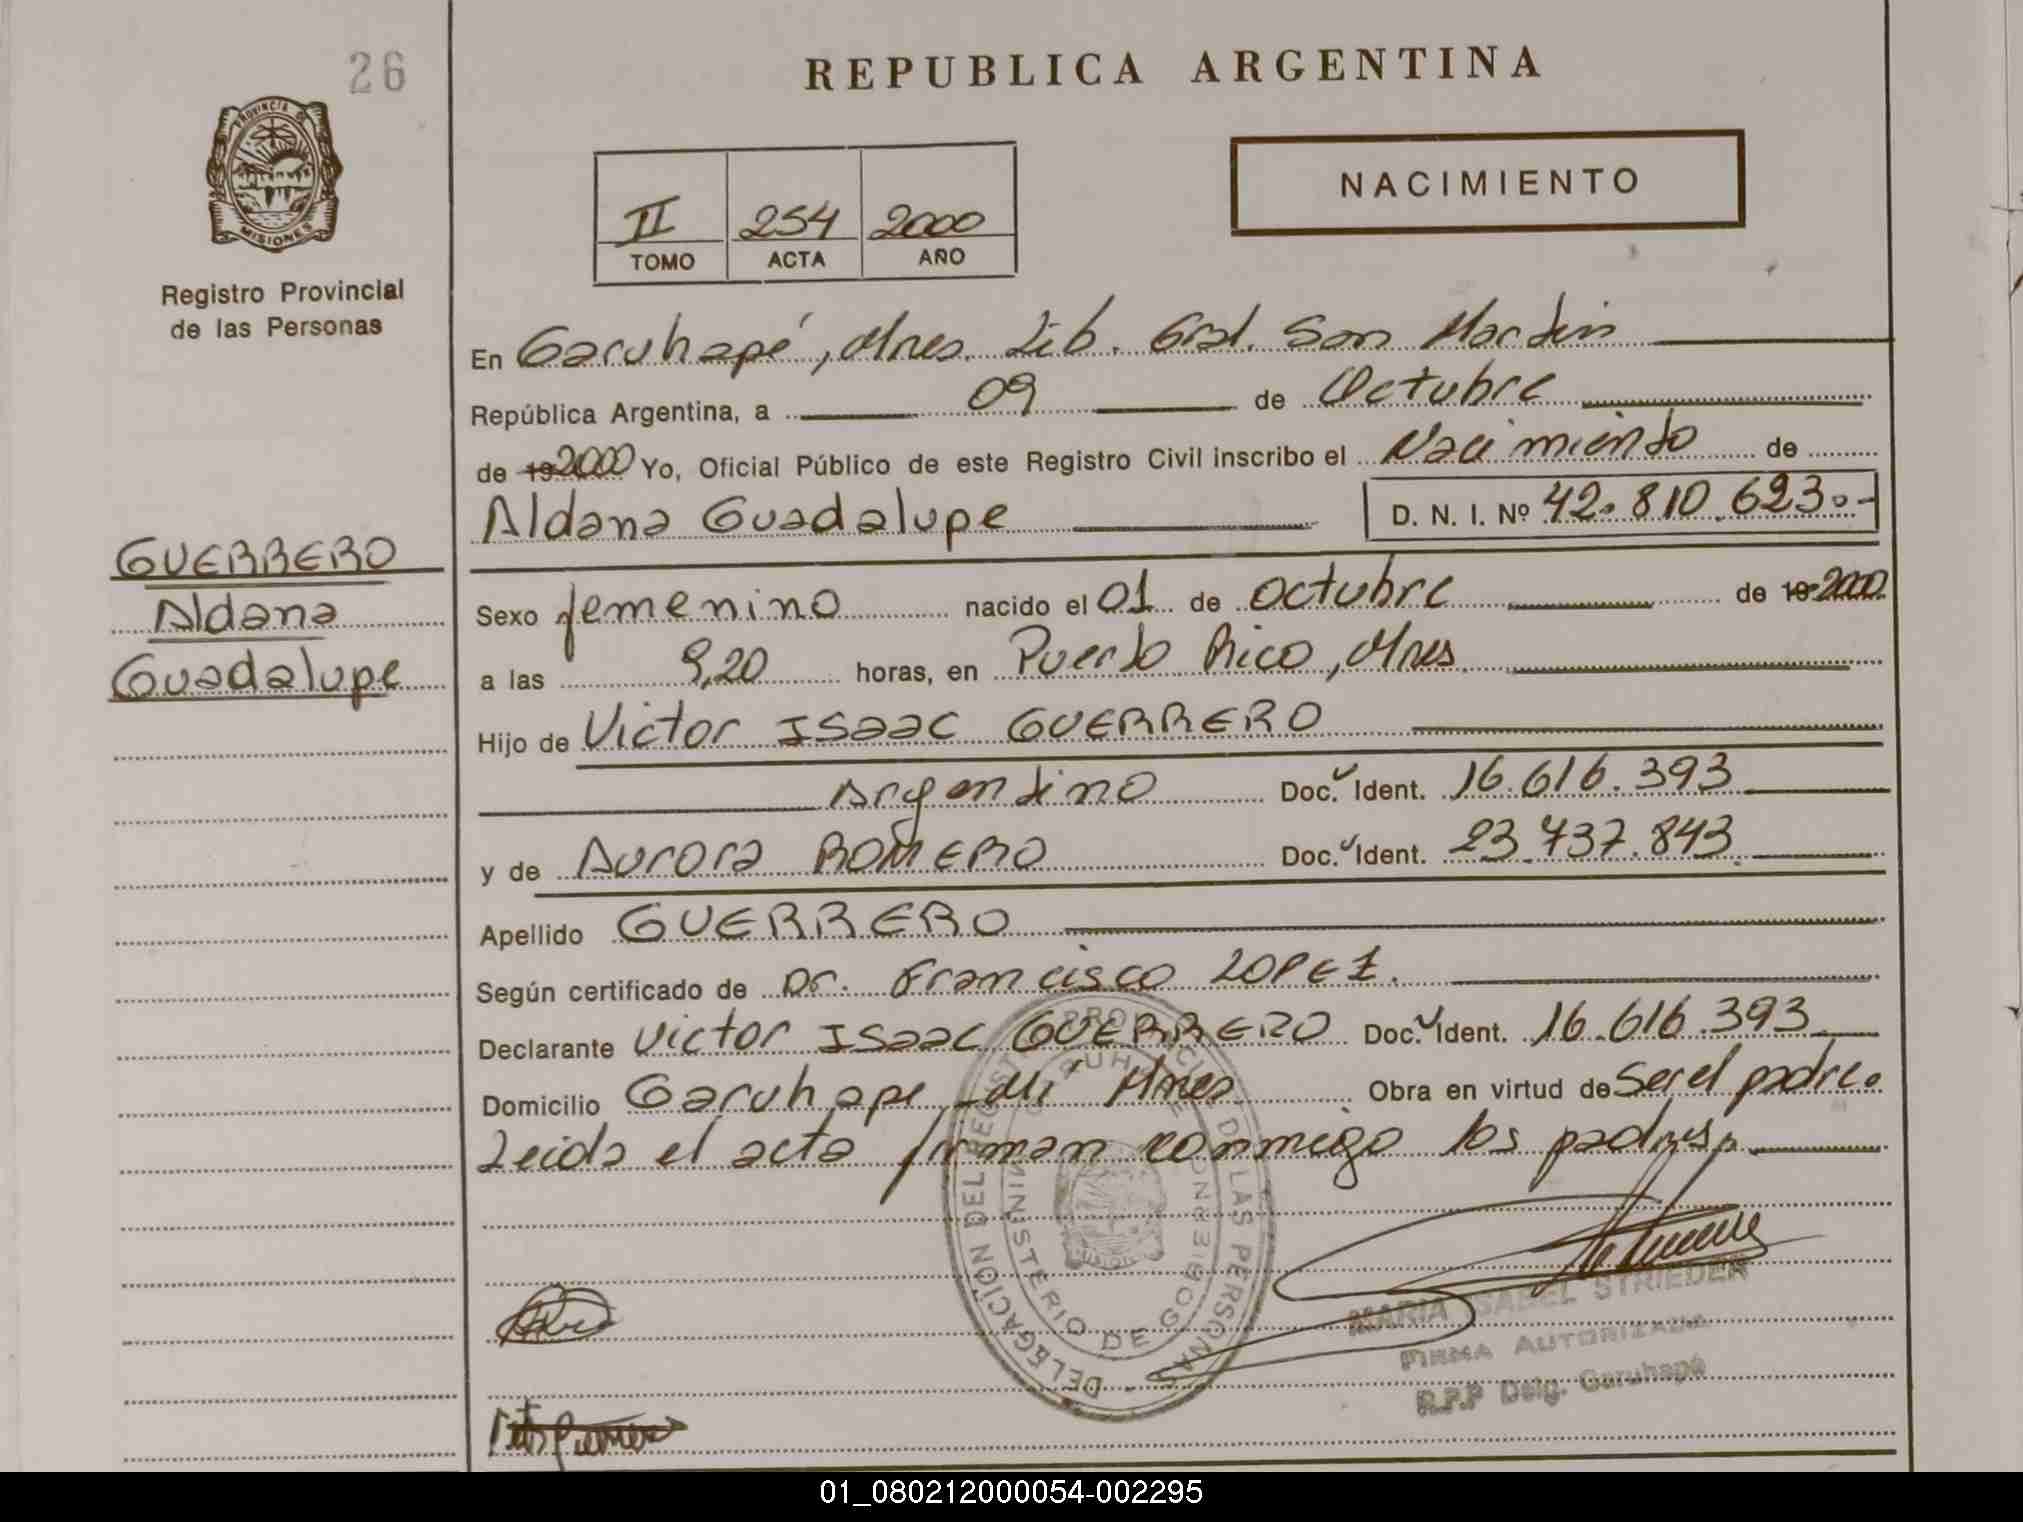 26
REPUBLICA ARGENTINA
PROVINCIA DE
MISIONES
Registro Provincial
de las Personas
II 254 2000
TOMO ACTA AÑO
NACIMIENTO
En Garuhapé, Mnes. Lib. Gral. San Martin
República Argentina, a 09 de Octubre
de 19 2000 Yo, Oficial Público de este Registro Civil inscribo el Nacimiento de
Aldana Guadalupe D. N. I. Nº 42.810.623.-
GUERRERO
Aldana
Guadalupe
Sexo femenino nacido el 01 de Octubre de 19 2000
a las 9,20 horas, en Puerto Rico, Mnes.
Hijo de Victor Isaac GUERRERO
Argentino Doc. Ident. 16.616.393
y de Aurora ROMERO Doc. Ident. 23.737.843
Apellido GUERRERO
Según certificado de Dr. Francisco LOPEZ.
Declarante Victor Isaac GUERRERO Doc. Ident. 16.616.393
Domicilio Garuhape -Mi Mnes Obra en virtud de Ser el padre.
Leida el acta firman conmigo los padres.
DELEGACIÓN DEL REGISTRO PROVINCIAL DE LAS PERSONAS
MINISTERIO DE GOBIERNO
MARIA ISABEL STRIEDER
FIRMA AUTORIZADA
R.P.P Delg. Garuhapé
01_080212000054-002295